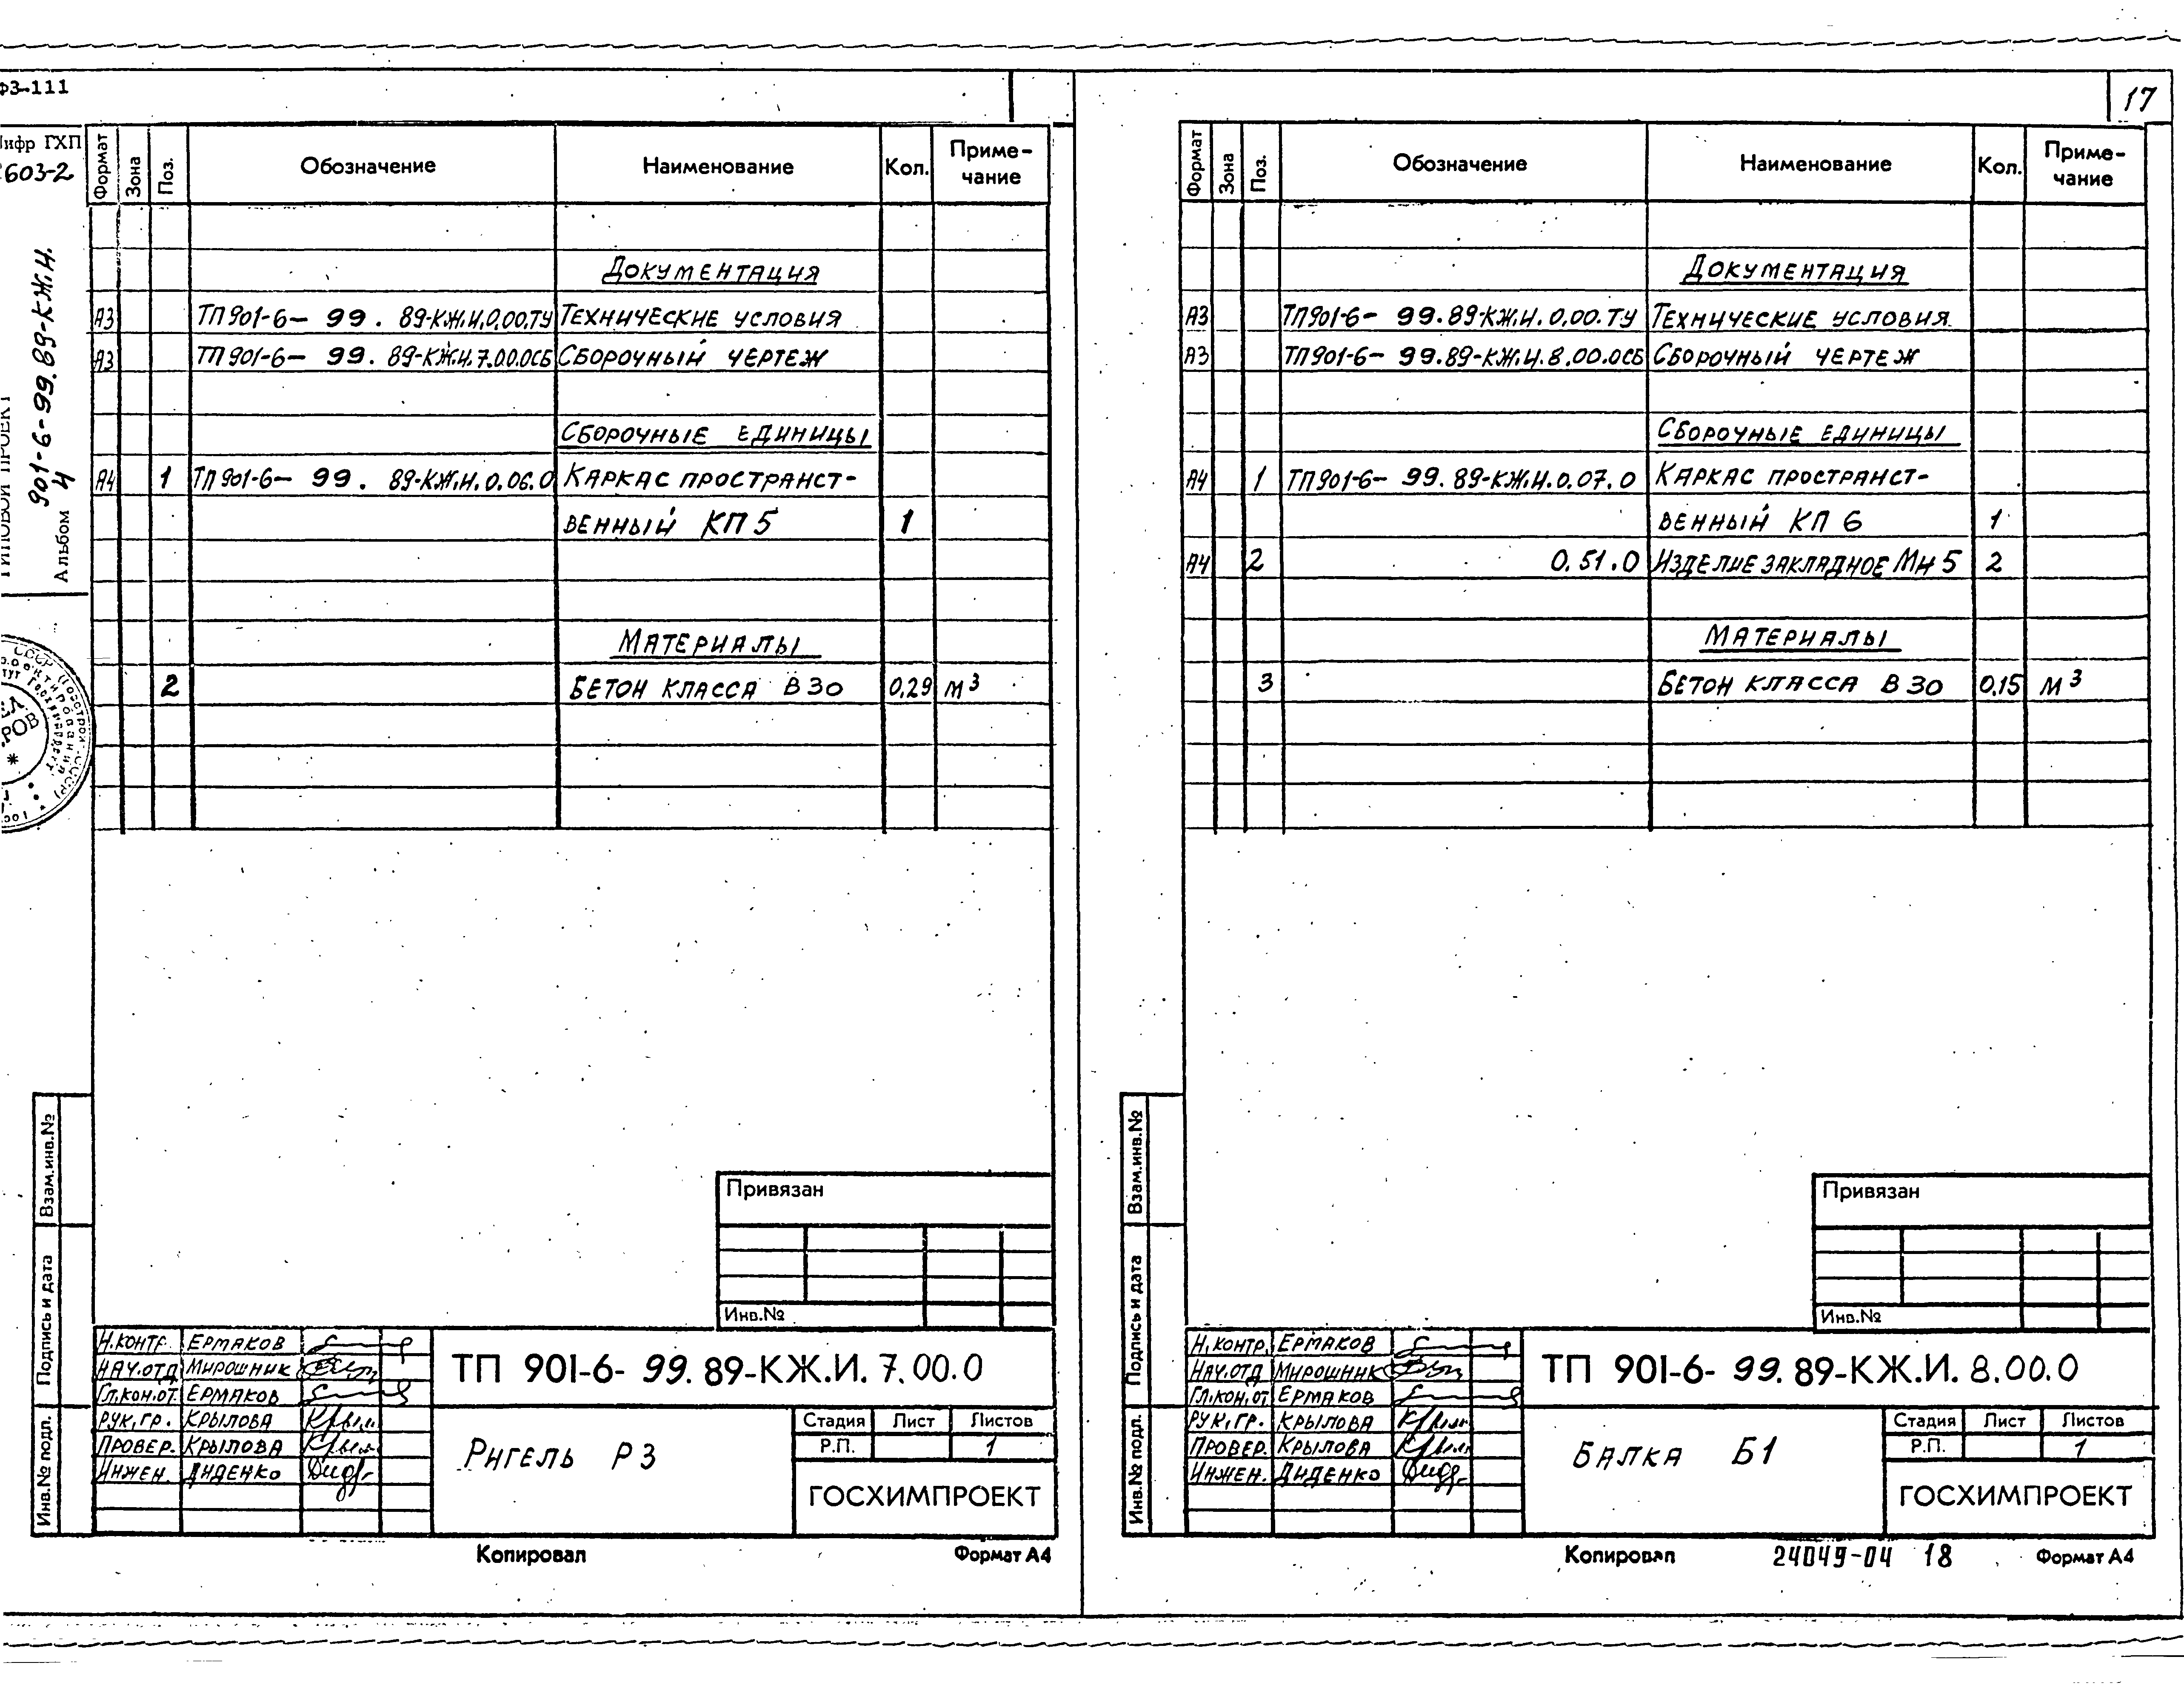 ФЗ-111
17
Шифр ГХП
603-2
ТИПОВОЙ ПРОЕКТ
901-6-99.89-КЖ.И.
Альбом 4
Формат Зона Поз. Обозначение Наименование Кол. Приме-
чание
Документация
А3 ТП901-6- 99. 89-КЖ.И.0.00.ТУ Технические условия
А3 ТП901-6- 99. 89-КЖ.И.7.00.0СБ Сборочный чертеж
Сборочные единицы
А4 1 ТП901-6- 99. 89-КЖ.И.0.06.0 Каркас пространст-
венный КП 5 1
Материалы
2 Бетон класса В 30 0,29 м³
Взам.инв.№
Подпись и дата
Инв.№ подл.
Привязан
Инв.№
Н.контр. Ермаков
Нач.отд Мирошник
Гл.кон.от. Ермаков
Рук.гр. Крылова
Провер. Крылова
Инжен. Диденко
ТП 901-6- 99. 89-КЖ.И. 7.00.0
Ригель Р3
Стадия Лист Листов
Р.П. 1
ГОСХИМПРОЕКТ
Копировал Формат А4
Формат Зона Поз. Обозначение Наименование Кол. Приме-
чание
Документация
А3 ТП901-6- 99.89-КЖ.И.0.00.ТУ Технические условия
А3 ТП901-6- 99.89-КЖ.И.8.00.0СБ Сборочный чертеж
Сборочные единицы
А4 1 ТП901-6- 99. 89-КЖ.И.0.07.0 Каркас пространст-
венный КП 6 1
А4 2 0.51.0 Изделие закладное МН 5 2
Материалы
3 Бетон класса В 30 0,15 м³
Взам.инв.№
Подпись и дата
Инв.№ подл.
Привязан
Инв.№
Н.контр. Ермаков
Нач.отд Мирошник
Гл.кон.от. Ермаков
Рук.гр. Крылова
Провер. Крылова
Инжен. Диденко
ТП 901-6- 99. 89-КЖ.И. 8.00.0
Балка Б1
Стадия Лист Листов
Р.П. 1
ГОСХИМПРОЕКТ
Копировал 24049-04 18 Формат А4